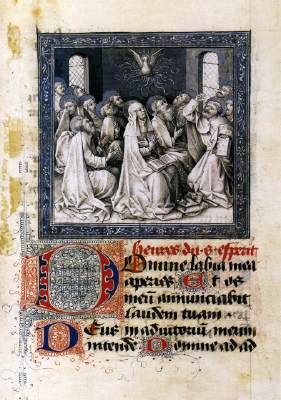 heures du s esprit
Domine labia mea
aperies Et os
meū annunciabit
laudem tuam
Deus in adiutorium meum
intende Domine ad ad